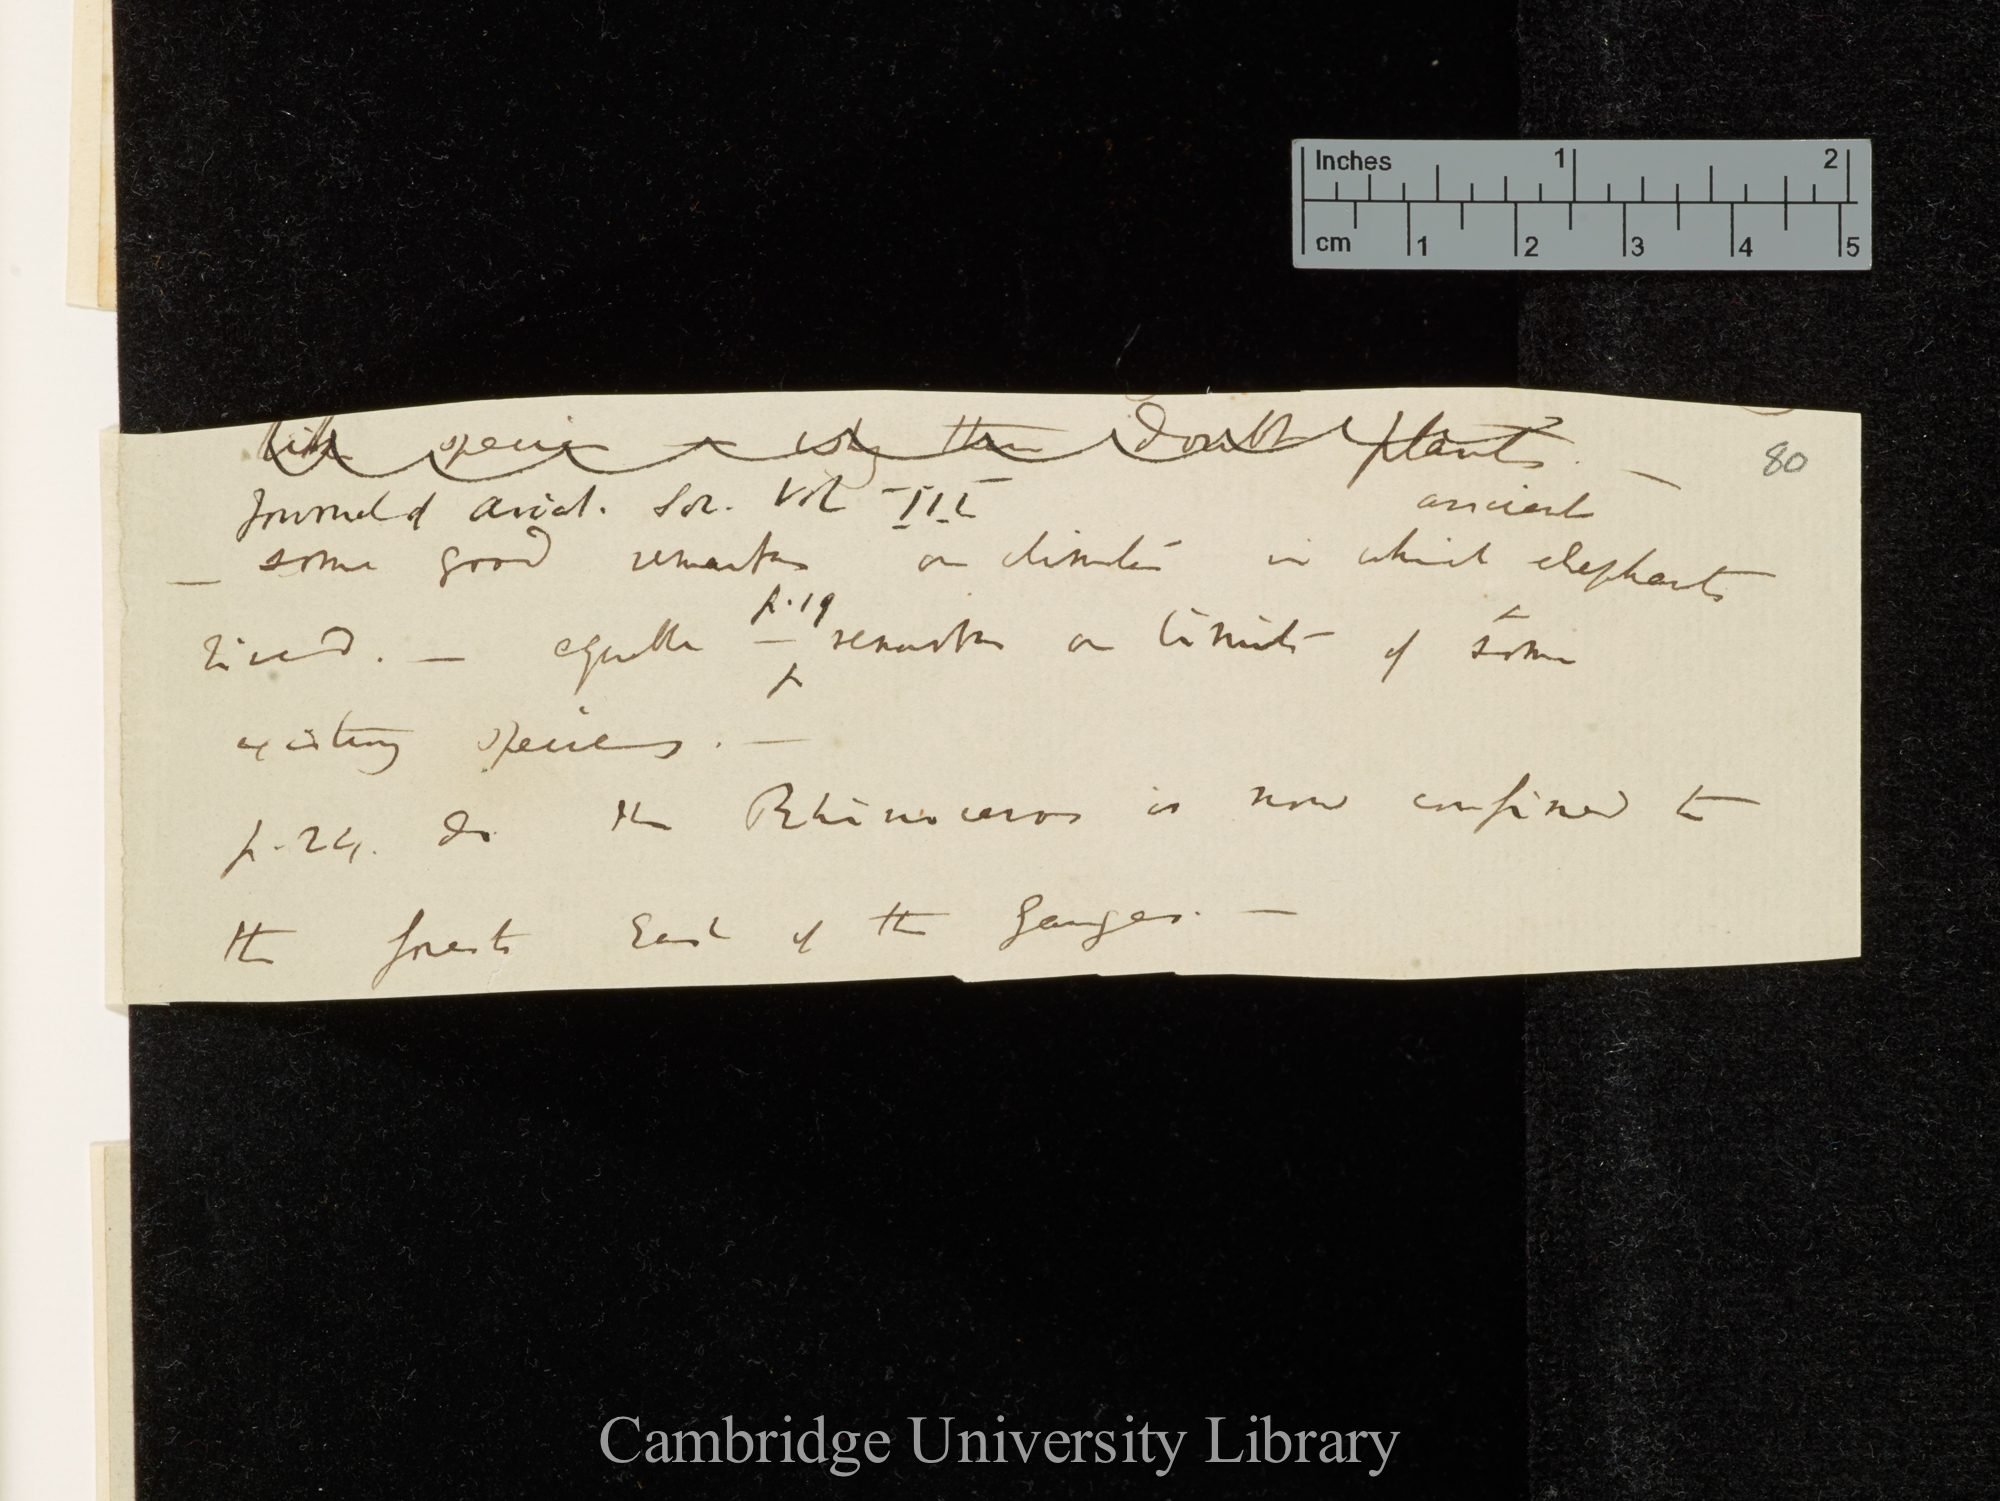 Inches 1 2
cm 1 2 3 4 5
80
species is why there doubt plants. —
Journal of Asiat. Soc. Vol III
ancient
— some good remarks on climate in which elephants
lived. — equable — remarks on limits of some
p. 19
p
existing species. —
p. 24. do the Rhinoceros is now confined to
the forests East of the Ganges. —
Cambridge University Library